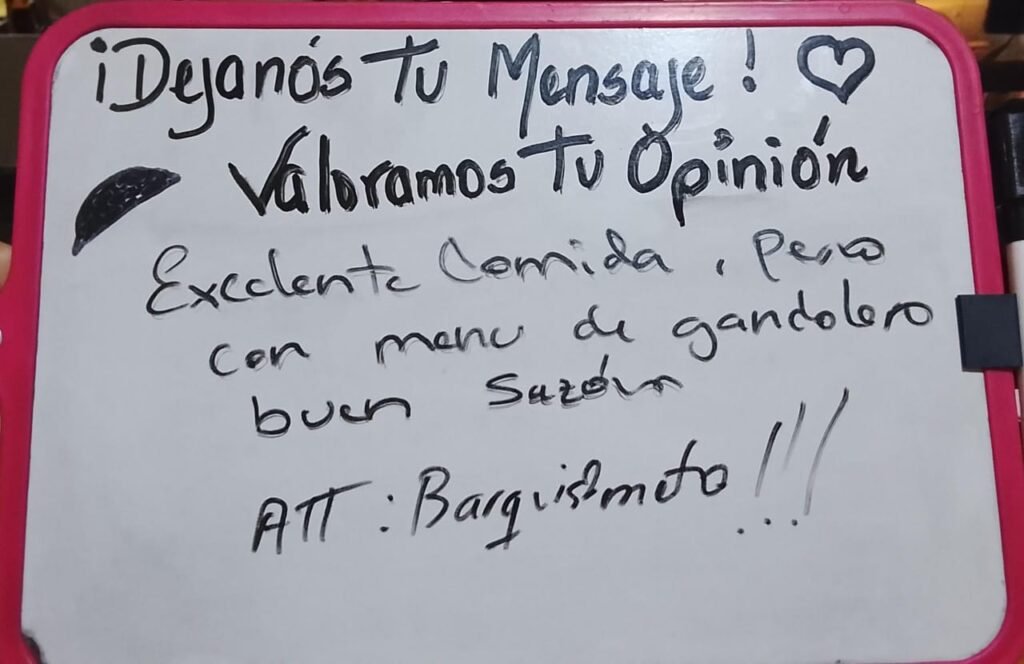 ¡Dejanós Tu Mensaje!
Valoramos Tu Opinión
Excelente Comida, Pero
con menu de gandolero
buen Sazón
ATT: Barquisimeto!!!